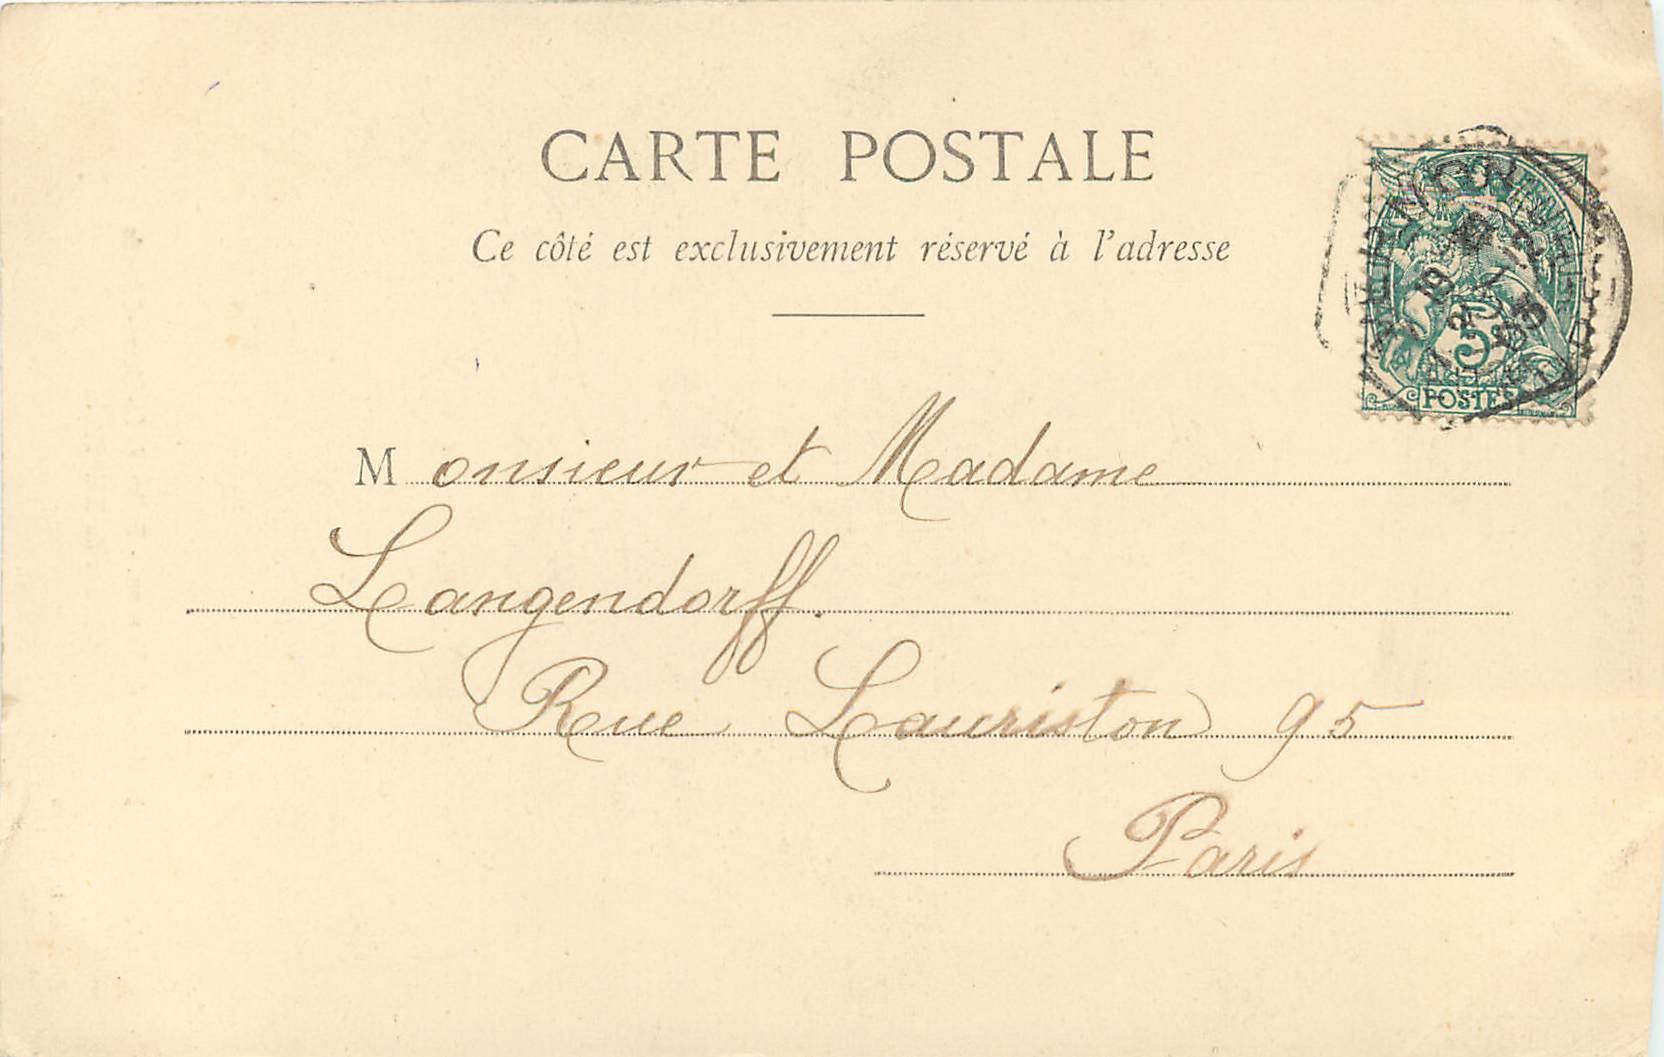 CARTE POSTALE
Ce côté est exclusivement réservé à l'adresse
5c
POSTES
Monsieur et Madame
Langendorff.
Rue Lauriston 95
Paris